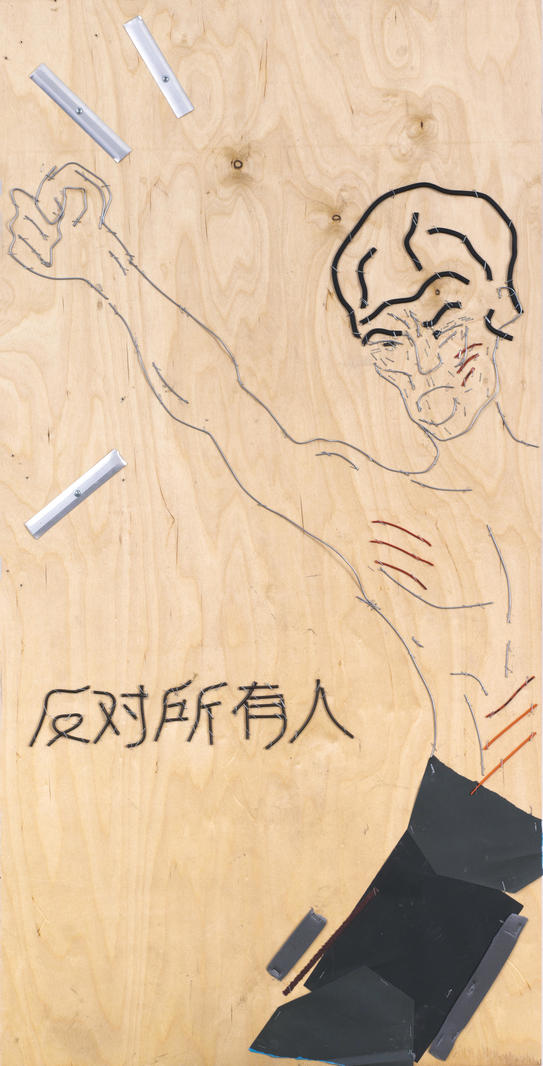 反对所有人